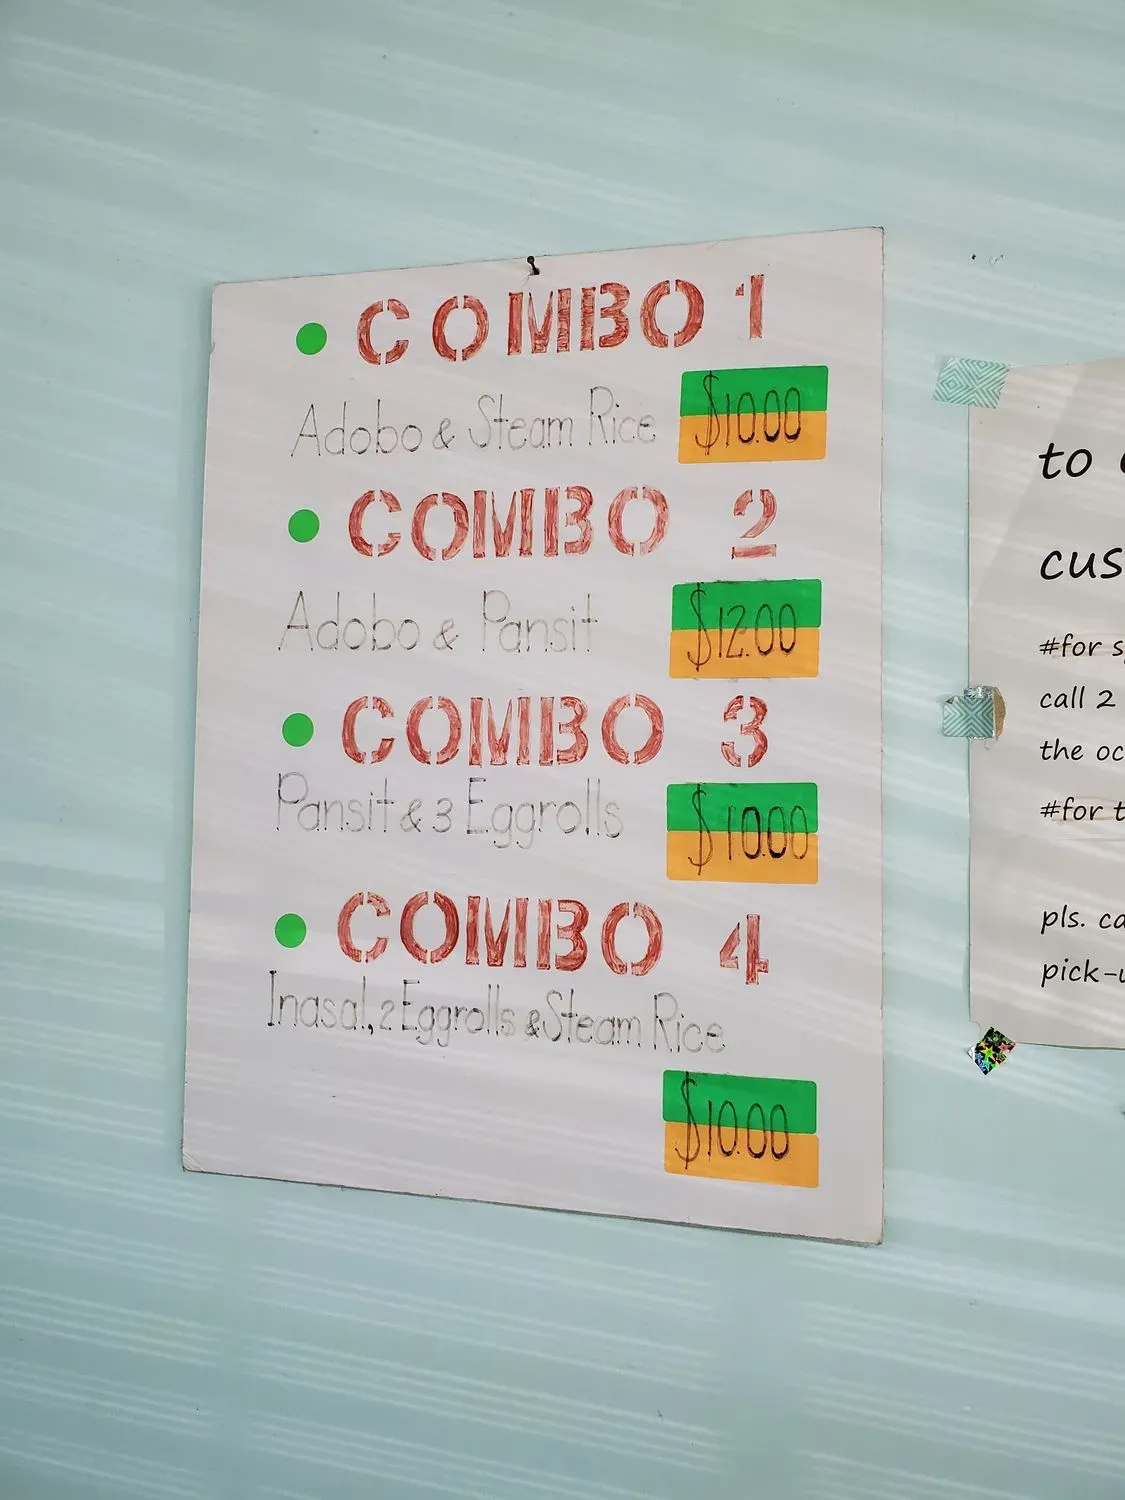 COMBO 1
Adobo & Steam Rice $10.00
COMBO 2
Adobo & Pansit $12.00
COMBO 3
Pansit & 3 Eggrolls $10.00
COMBO 4
Inasal, 2 Eggrolls & Steam Rice
$10.00
to
cus
#for
call 2
the oc
#for t
pls. ca
pick-u